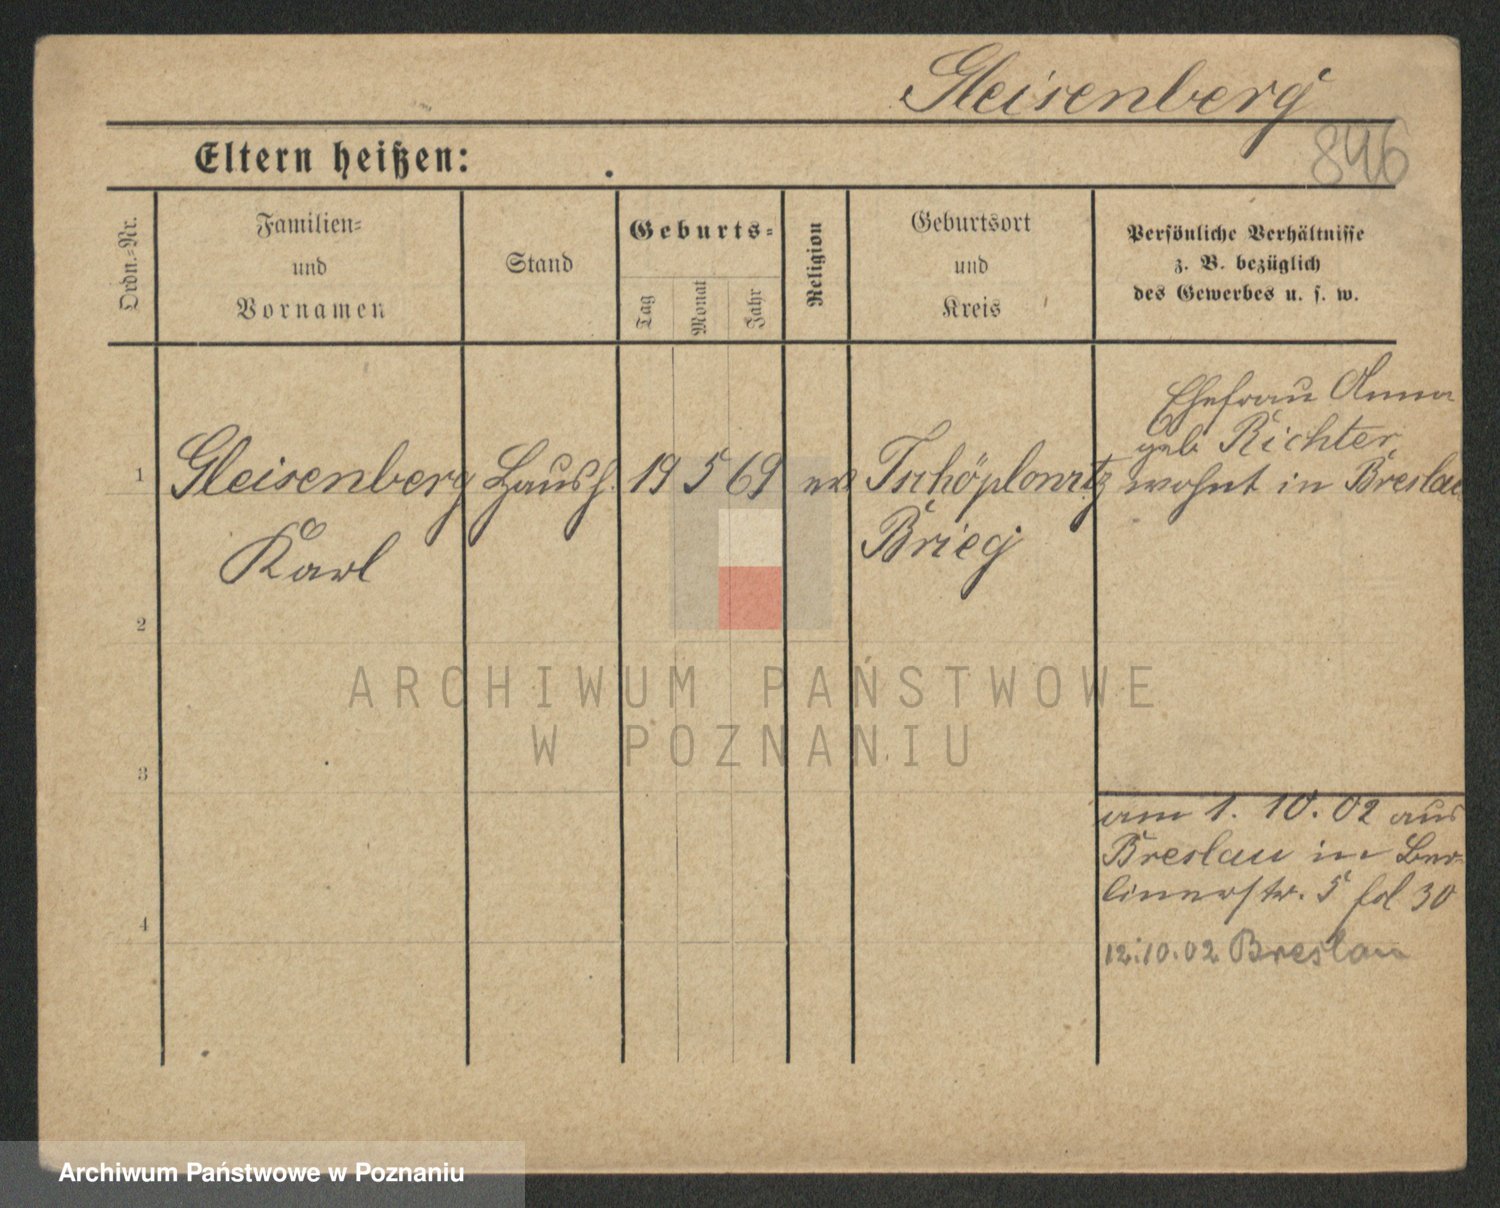 Gleisenberg
846
Eltern heißen:
Ordn.-Nr.
Familien-
und
Vornamen
Stand
Geburts-
Tag
Monat
Jahr
Religion
Geburtsort
und
Kreis
Persönliche Verhältnisse
z. B. bezüglich
des Gewerbes u. s. w.
Ehefrau Anna
geb Richter
1 Gleisenberg Haush. 19 5 69 ev Tschöplowitz wohnt in Breslau
Karl Brieg
2
3
4
am 1. 10. 02 aus
Breslau in Ber-
linerstr. 5 fol 30
12.10.02 Breslau
ARCHIWUM PAŃSTWOWE
W POZNANIU
Archiwum Państwowe w Poznaniu